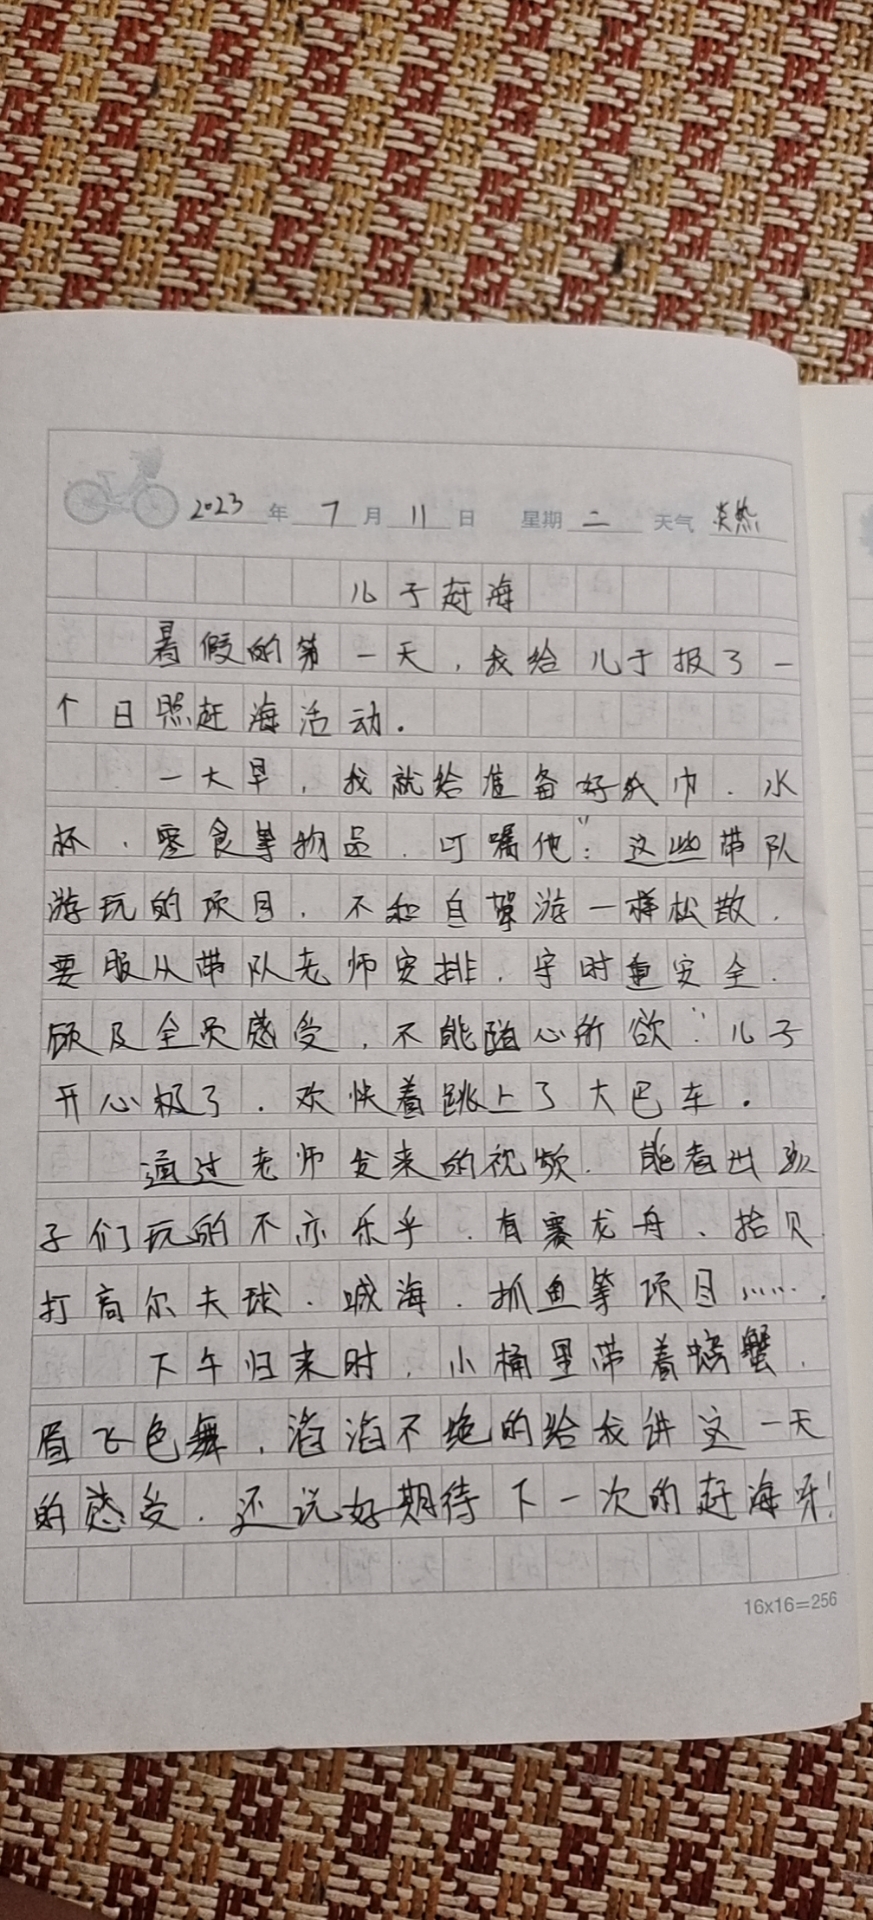 2023年7月11日 星期二 天气 炎热
儿子赶海
暑假的第一天，我给儿子报了一
个日照赶海活动.
一大早，我就给准备好纸巾、水
杯、零食等物品，叮嘱他：“这些带队
游玩的项目，不和自驾游一样松散，
要服从带队老师安排，守时重安全，
顾及全员感受，不能随心所欲”儿子
开心极了，欢快着跳上了大巴车.
通过老师发来的视频，能看出孩
子们玩的不亦乐乎，有赛龙舟、拾贝
打高尔夫球、喊海、抓鱼等项目……
下午归来时，小桶里带着螃蟹，
眉飞色舞，滔滔不绝的给我讲这一天
的感受，还说好期待下一次的赶海呀！
16x16=256